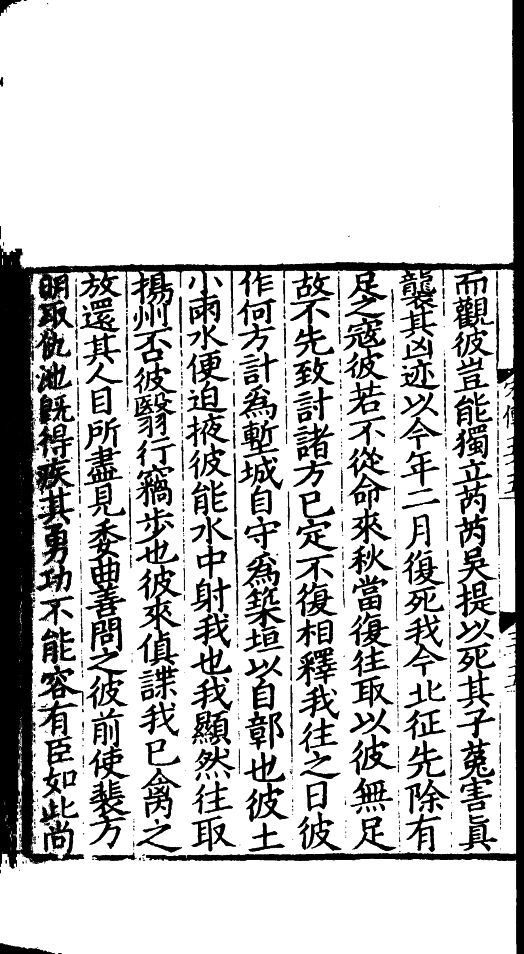 而觀彼豈能獨立芮芮吳提以死其子菟害真
襲其凶迹以今年二月復死我今北征先除有
足之寇彼若不從命來秋當復往取以彼無足
故不先致討諸方已定不復相釋我往之日彼
作何方計為塹城自守為築垣以自鄣也彼土
小雨水便迫掖彼能水中射我也我顯然往取
揚州不若彼翳行竊步也彼來偵諜我已禽之
放還其人目所盡見委曲善問之彼前使裴方
明取仇池既得疾其勇功不能容有臣如此尚